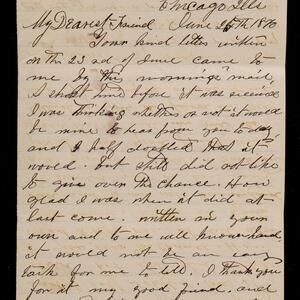 Chicago Ills
My Dearest Friend June 25th 1870
Your kind letter written
on the 23rd of June came to
me by this mornings mail,
A short time before it was received
I was thinking whether or not it would
be mine to hear from you to day
and I half doubted that it
would. but still did not like
to give over the chance. How
glad I was when it did at
last come. written in your
own and to me well known hand
it would not be an easy
task for me to tell. I thank you
for it my good friend. and